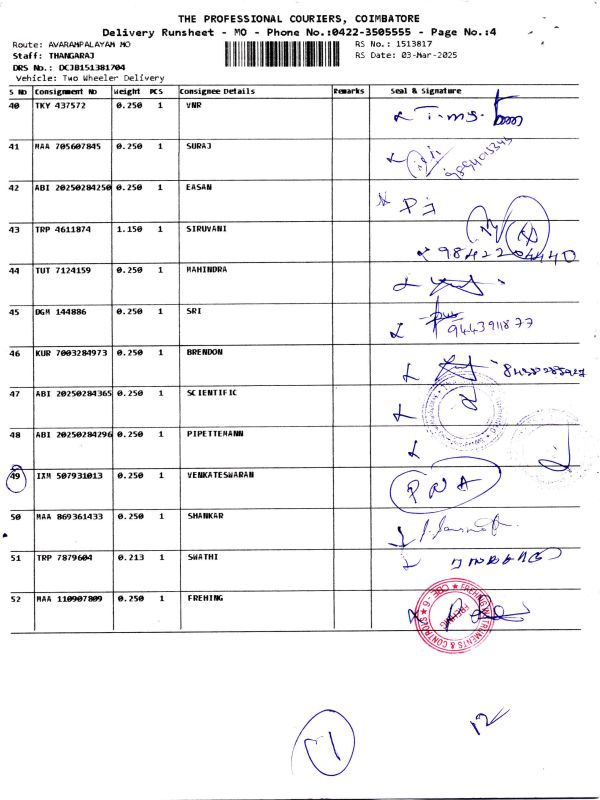 THE PROFESSIONAL COURIERS, COIMBATORE
Delivery Runsheet - MO - Phone No.:0422-3505555 - Page No.:4
Route: AVARAMPALAYAM MO RS No.: 1513817
Staff: THANGARAJ RS Date: 03-Mar-2025
DRS No.: DCJB151381704
Vehicle: Two Wheeler Delivery
S No Consignment No Weight PCS Consignee Details Remarks Seal & Signature
40 TKY 437572 0.250 1 VNR
41 MAA 705607845 0.250 1 SURAJ
42 ABI 20250284250 0.250 1 EASAN
43 TRP 4611874 1.150 1 SIRUVANI
9842204440
44 TUT 7124159 0.250 1 MAHINDRA
45 DGM 144886 0.250 1 SRI
9443911877
46 KUR 7003284973 0.250 1 BRENDON
47 ABI 20250284365 0.250 1 SCIENTIFIC
48 ABI 20250284296 0.250 1 PIPETTEMANN
49 IXM 507931013 0.250 1 VENKATESWARAN PNA
50 MAA 869361433 0.250 1 SHANKAR
51 TRP 7879604 0.213 1 SWATHI
52 MAA 110907809 0.250 1 FREHING
FREHING INSTRUMENTS & CONTROLS ★ CBE - 6 ★
FREHING
12